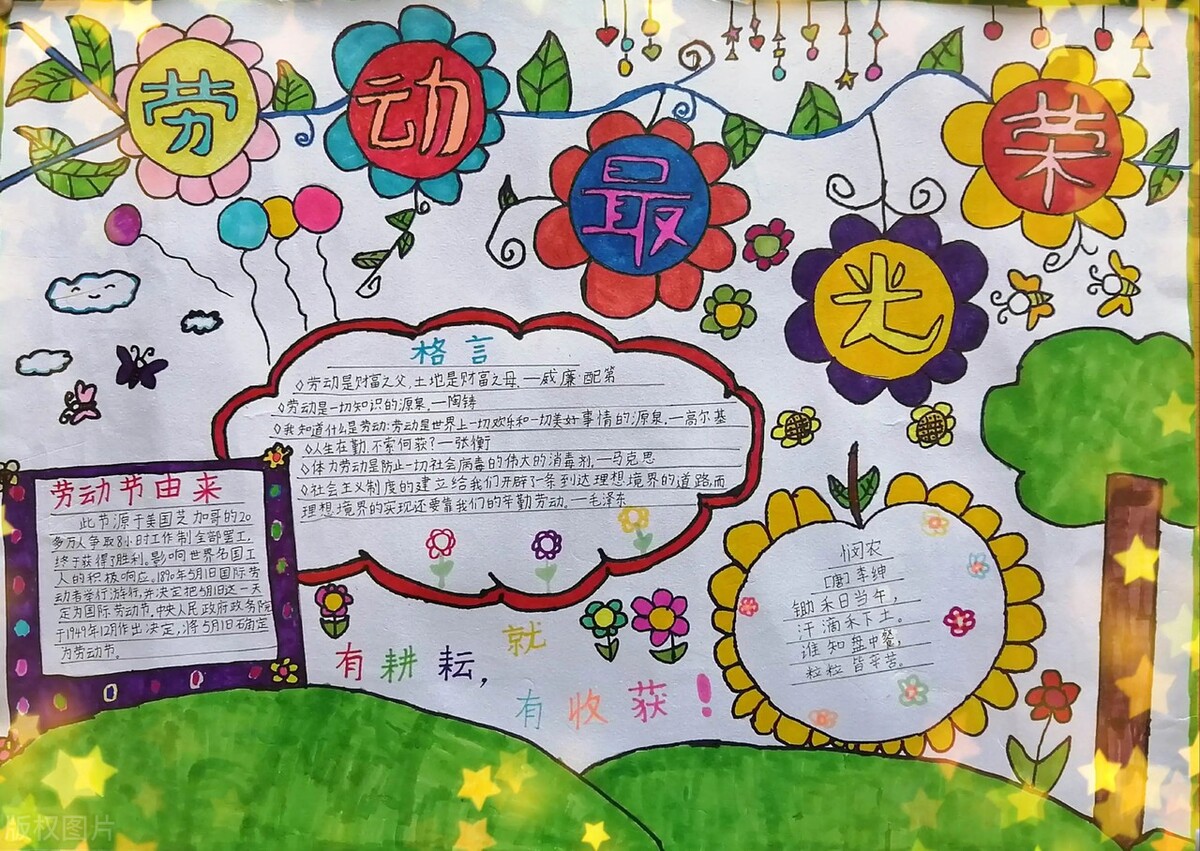 劳动最光荣
格言
◇劳动是财富之父,土地是财富之母。—威廉·配第
◇劳动是一切知识的源泉。—陶铸
◇我知道什么是劳动:劳动是世界上一切欢乐和一切美好事情的源泉。—高尔基
◇人生在勤,不索何获?—张衡
◇体力劳动是防止一切社会病毒的伟大的消毒剂。—马克思
◇社会主义制度的建立给我们开辟了一条到达理想境界的道路,而
理想境界的实现还要靠我们的辛勤劳动。—毛泽东
劳动节由来
此节源于美国芝加哥的20
多万人争取8小时工作制全部罢工,
终于获得了胜利。影响世界各国工
人的积极响应。1890年5月1日国际劳
动者举行游行,并决定把5月1日这一天
定为国际劳动节,中央人民政府政务院
于1949年12月作出决定,将5月1日确定
为劳动节。
悯农
[唐]李绅
锄禾日当午,
汗滴禾下土。
谁知盘中餐,
粒粒皆辛苦。
有耕耘,就
有收获!
版权图片